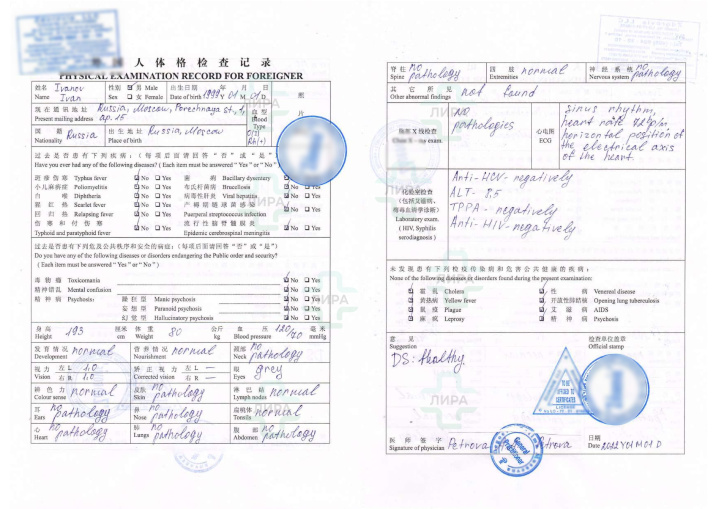 人 体 格 检 查 记 录
PHYSICAL EXAMINATION RECORD FOR FOREIGNER
姓名 Ivanov 性别 男 Male 出生日期 年 月 日
Name Ivan Sex 女 Female Date of birth 1999 Y 01 M 01 D
现 在 通 讯 地 址 Russia, Moscow, Porechnaya st., 1, 血 型
Present mailing address ap. 15 Blood Type
国 籍 Russia 出 生 地 址 Russia, Moscow
Nationality Place of birth O(I) Rh(+)
照
片
过去是否患有下列疾病：（每项后面请回答“否”或“是”）
Have you ever had any of the following diseases? ( Each item must be answered " Yes " or " No " )
斑 疹 伤 寒 Typhus fever No Yes 菌 痢 Bacillary dysentery No Yes
小儿麻痹症 Poliomyelitis No Yes 布氏杆菌病 Brucellosis No Yes
白 喉 Diphtheria No Yes 病毒性肝炎 Viral hepatitis No Yes
猩 红 热 Scarlet fever No Yes 产褥期链球菌感染
回 归 热 Relapsing fever No Yes Puerperal streptococcus infection No Yes
伤 寒 和 付 伤 寒 No Yes 流行性脑脊髓膜炎
Typhoid and paratyphoid fever Epidemic cerebrospinal meningitis No Yes
过去是否患有下列危及公共秩序和安全的病症：（每项后面请回答“否”或“是”）
Do you have any of the following diseases or disorders endangering the Public order and security?
( Each item must be answered " Yes " or " No " )
毒 物 瘾 Toxicomania No Yes
精神错乱 Mental confusion No Yes
精 神 病 Psychosis: 躁 狂 型 Manic psychosis No Yes
妄 想 型 Paranoid psychosis No Yes
幻 觉 型 Hallucinatory psychosis No Yes
身 高 193 厘米 体 重 80 公斤 血 压 120/70 毫 米
Height cm Weight Kg Blood pressure mmHg
发 育 情 况 normal 营 养 情 况 normal 颈部 no
Development Nourishment Neck pathology
视 力 左 L 1.0 矫 正 视 力 左 L — 眼 grey
Vision 右 R 1.0 Corrected vision 右 R — Eyes
辨 色 力 normal 皮肤 no pathology 淋 巴 结 normal
Colour sense Skin Lymph nodes
耳 no 鼻 no 扁桃体 normal
Ears pathology Nose pathology Tonsils
心 no 肺 no 腹 部 no
Heart pathology Lungs pathology Abdomen pathology
脊 柱 no 四 肢 normal 神 经 系 统 no
Spine pathology Extremities Nervous system pathology
其 它 所 见 not found
Other abnormal findings
胸部 X 线检查 no pathologies
Chest X - ray exam
心电图
ECG
Sinus rhythm,
heart rate 72 bpm
horizontal position of
the electrical axis
of the heart.
化验室检查
（包括艾滋病、
梅毒血清学诊断）
Laboratory exam.
( HIV, Syphilis
serodiagnosis )
Anti-HCV - negatively
ALT - 8,5
TPPA - negatively
Anti-HIV - negatively
未 发 现 患 有 下 列 检 疫 传 染 病 和 危 害 公 共 健 康 的 疾 病：
None of the following diseases or disorders found during the present examination:
霍 乱 Cholera 性 病 Venereal disease
黄热病 Yellow fever 开放性肺结核 Opening lung tuberculosis
鼠 疫 Plague 艾 滋 病 AIDS
麻 疯 Leprosy 精 神 病 Psychosis
意 见 检查单位盖章
Suggestion Official stamp
DS: Healthy.
医 师 签 字 Petrova Petrova 日期
Signature of physician Date 2022 Y 01 M 01 D
General Practitioner
ЛИРА
ЛИРА
ЛИРА
ЛИРА